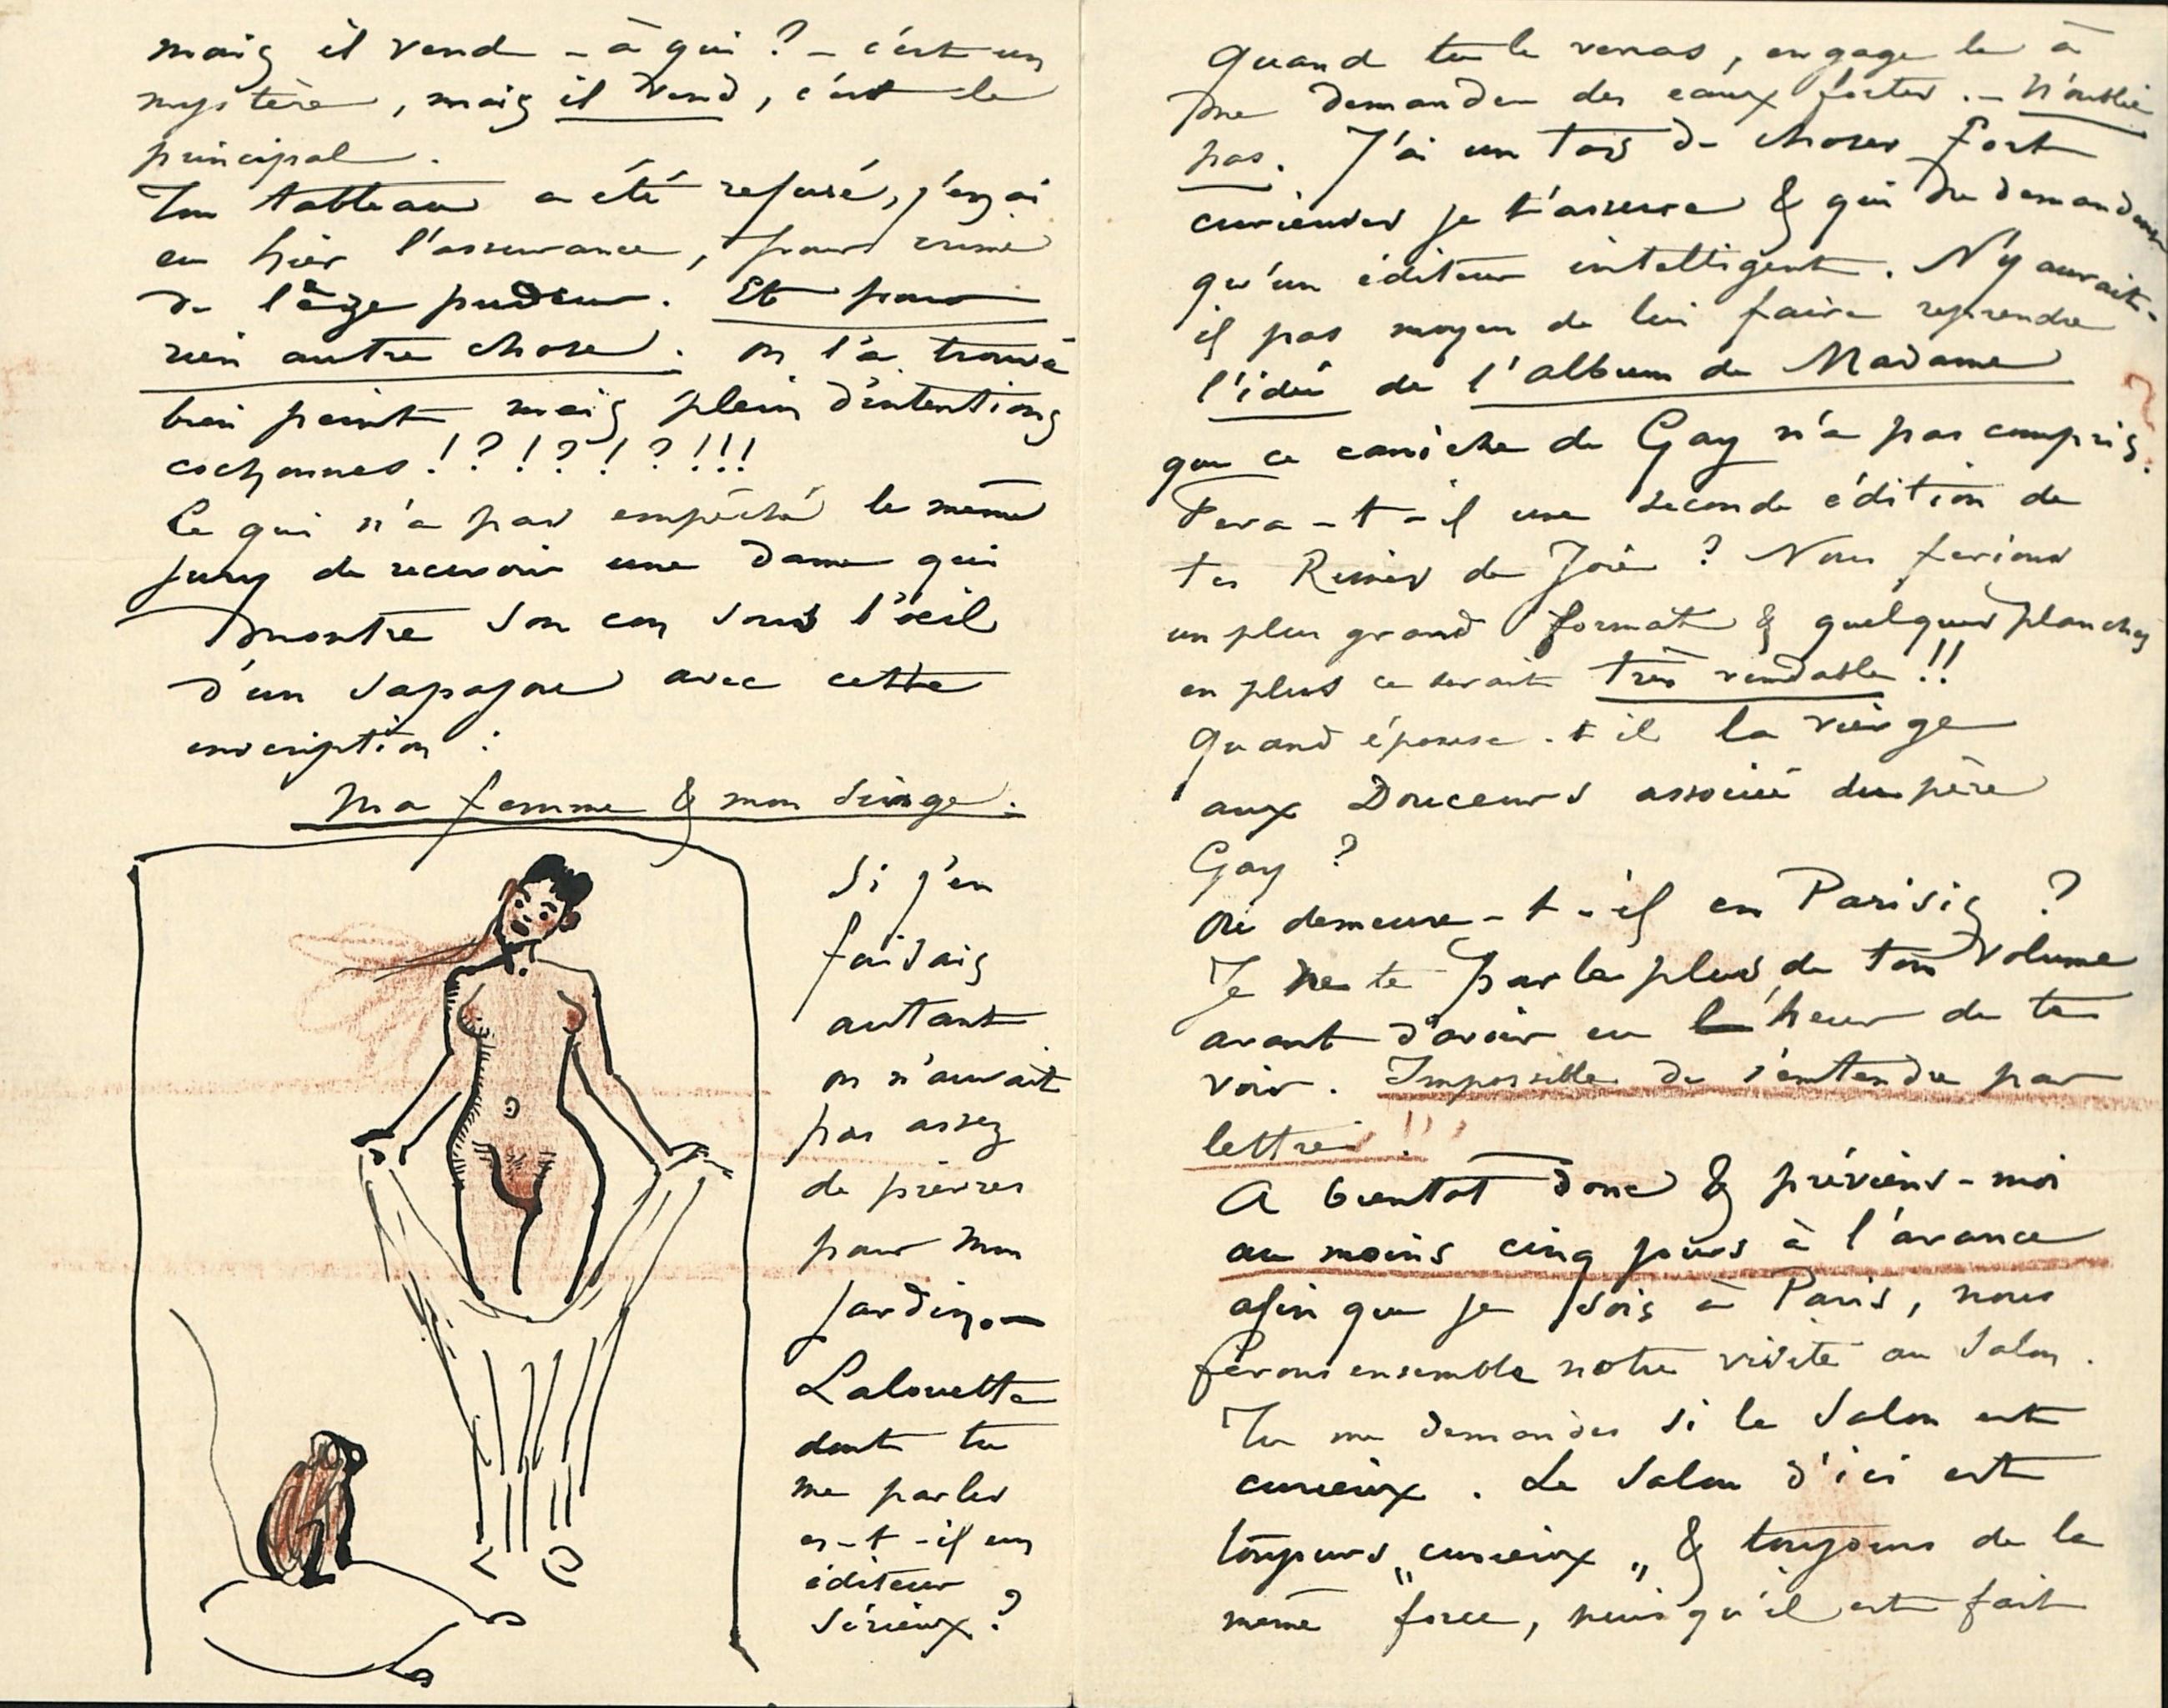 mais il vend – à qui ? – c'est un
mystère, mais il vend, c'est le
principal.
Ton tableau a été refusé, j'en ai
eu hier l'assurance, pour crime
de lèze pudeur. Et pour
rien autre chose. on l'a trouvé
bien peint mais plein d'intentions
cochonnes !?!?!?!!!
Ce qui n'a pas empêché le même
jury de recevoir une dame qui
montre son con sous l'œil
d'un sapajou avec cette
inscription :
Ma femme & mon singe.
Si j'en
faisais
autant
on n'aurait
pas assez
de pierres
pour mon
jardin. –
Lalouette
dont tu
me parles
es-t-il un
éditeur
sérieux ?
Quand tu le verras, engage le à
me demander des eaux fortes. – N'oublie
pas. J'ai un tas de choses fort
curieuses je t'assure & qui ne demandent
qu'un éditeur intelligent. N'y aurait-
il pas moyen de lui faire reprendre
l'idée de l'album de Madame
que ce caniche de Gay n'a pas compris.
Fera-t-il une seconde édition de
tes Rimes de Joie ? Nous ferions
un plus grand format & quelques planches
en plus ce serait très vendable !!
Quand épouse-t-il la vierge
aux Douceurs associée du père
Gay ?
Où demeure-t-il en Parisis ?
Je ne te parle plus de ton volume
avant d'avoir eu l'heur de te
voir. Impossible de s'entendre par
lettre !!
A bientot donc & préviens-moi
au moins cinq jours à l'avance
afin que je sois à Paris, nous
ferons ensemble notre visite au Salon.
Tu me demandes si le Salon est
curieux. Le Salon d'ici est
toujours „curieux„ & toujours de la
même force, puisqu'il est fait